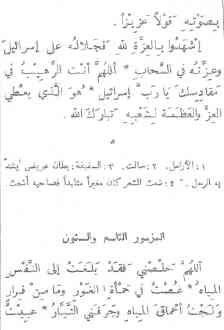 بِصَوْتِهِ قَوْلاً عَزِيزاً.
إِشْهَدُوا بِالعِزَّةِ للهِ فَجَلالُهُ على إسرائيلَ
وعِزَّتُهُ في السَّحَابِ * أللهُمَّ أنتَ الرَّهِيبُ في
مَقَادِسِكَ يا رَبَّ إسرائيلَ * هُوَ الَّذي يُعْطي
العِزَّ والعَظَمَةَ لِشَعْبِهِ تَبَارَكَ اللهُ.
*
١ : الأرامل. ٢ : سالت. ٣ : السفينة : بطان عريض
به الرحل. ٤ : شعث الشعر كان مغبراً متلبداً فصاحبه أشعث
المزمور التاسع والستون
أللهُمَّ خَلِّصْني فَقَدْ بَلَغَتْ إلى النَّفْسِ
المِياهُ * غُصْتُ في حَمْأةِ الغَوْرِ وما مِنْ قَرارٍ
وَلَجْتُ أعْمَاقَ المِياهِ وجَرَفَني التَّيَّارُ * عَيِيتُ